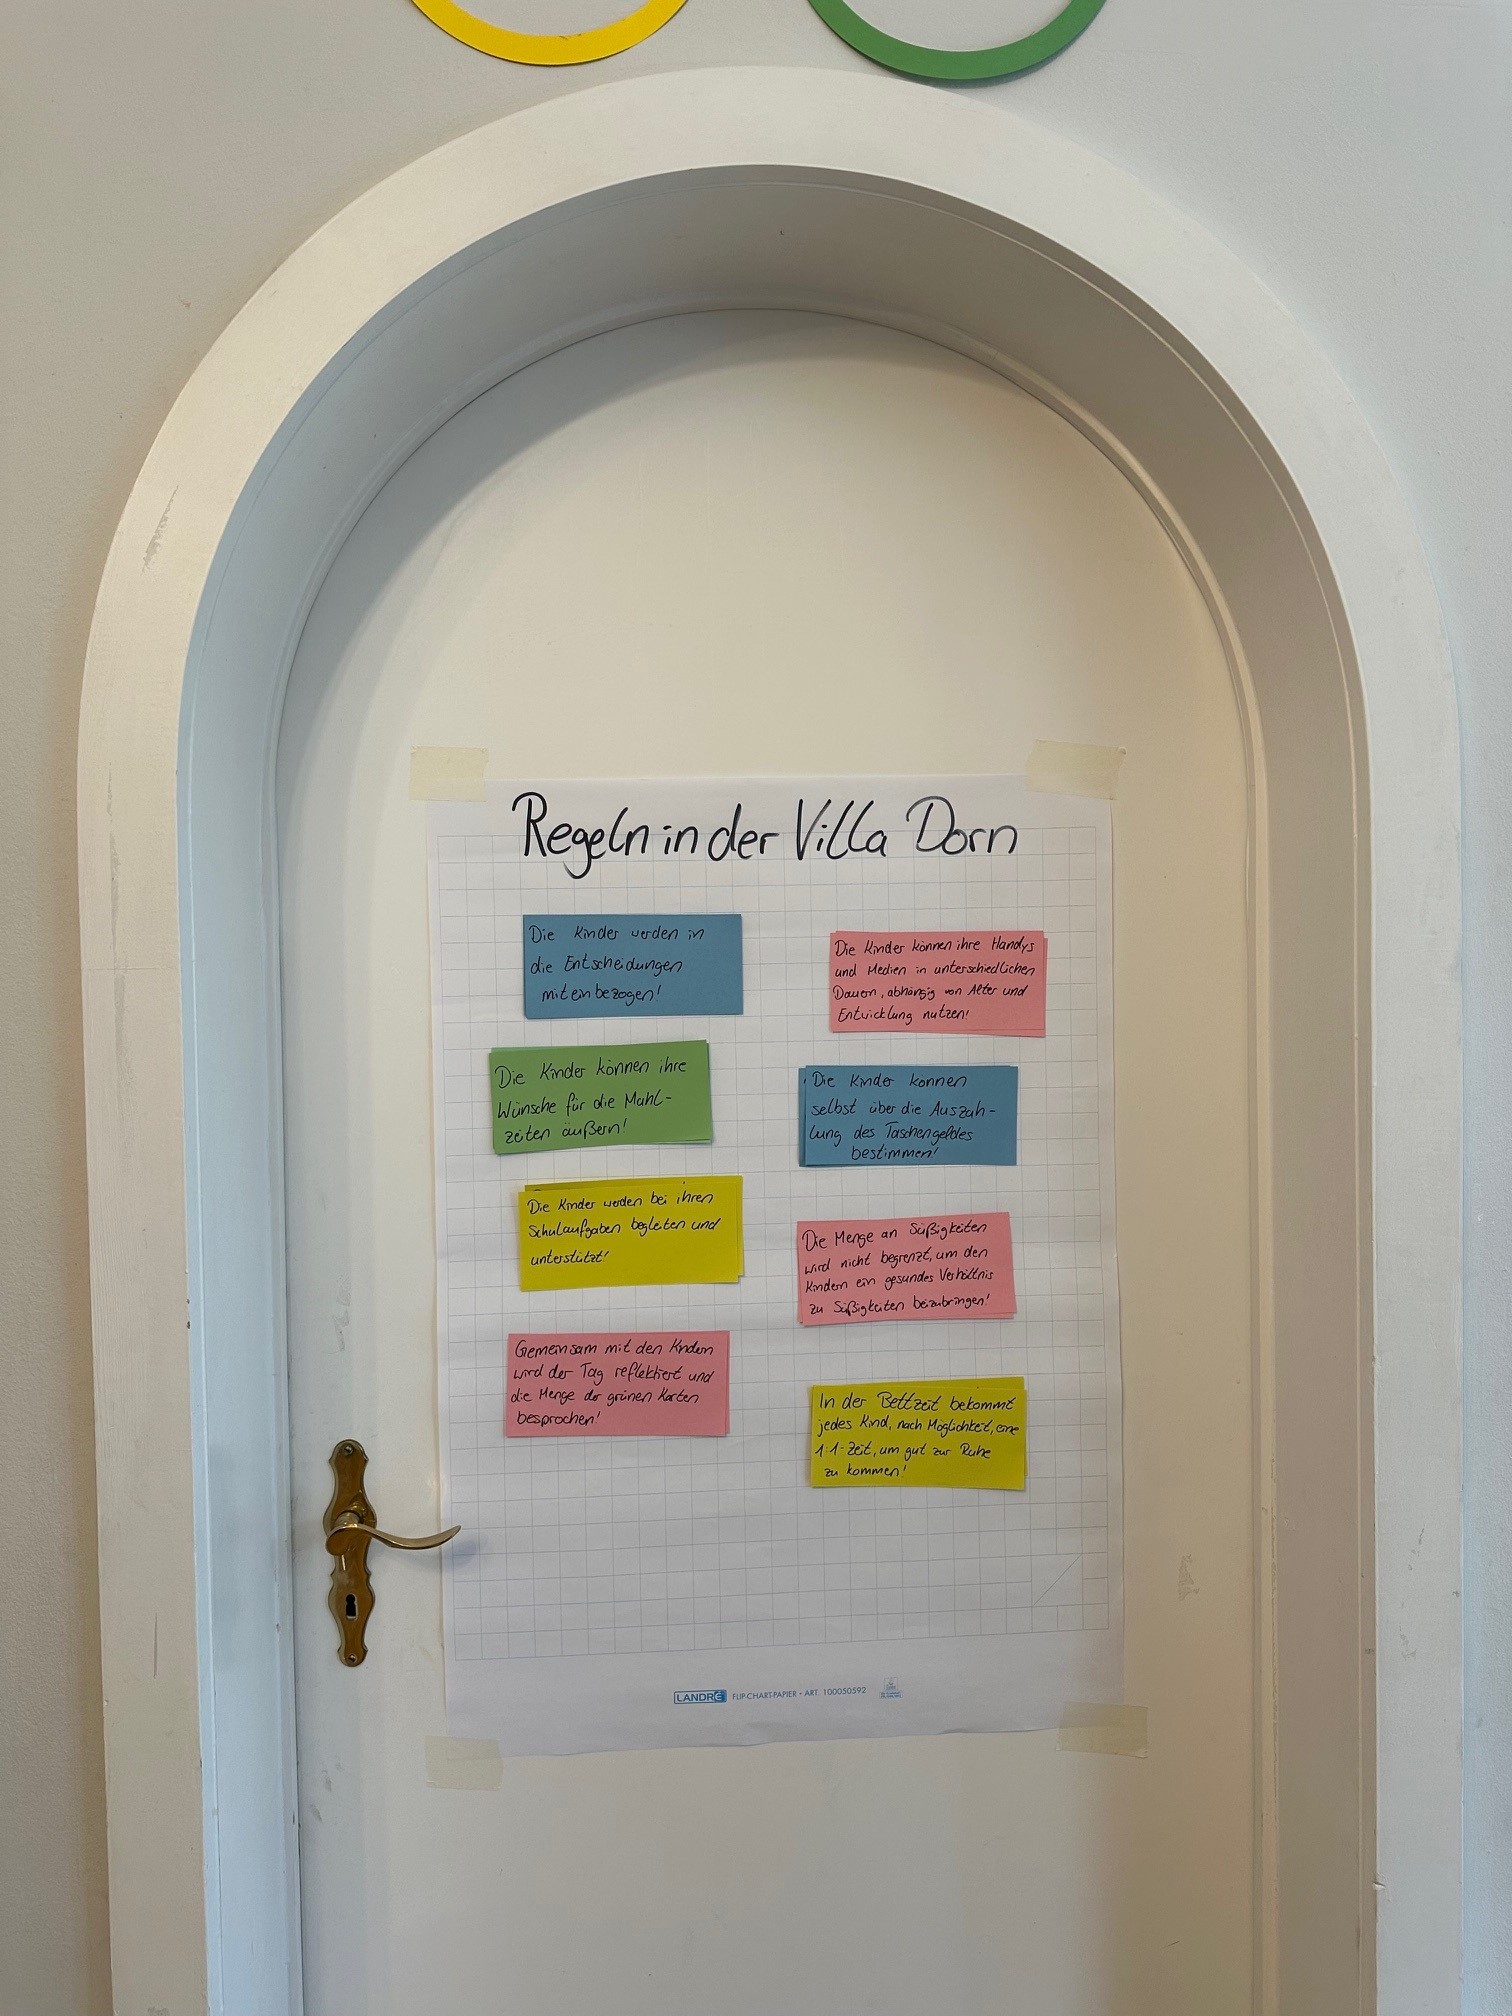 Regeln in der Villa Dorn
Die Kinder werden in
die Entscheidungen
miteinbezogen!
Die Kinder können ihre
Wünsche für die Mahl-
zeiten äußern!
Die Kinder werden bei ihren
Schulaufgaben begleiten und
unterstützt!
Gemeinsam mit den Kindern
wird der Tag reflektiert und
die Menge der grünen Karten
besprochen!
Die Kinder können ihre Handys
und Medien in unterschiedlichen
Dauern, abhängig von Alter und
Entwicklung nutzen!
Die Kinder können
selbst über die Auszah-
lung des Taschengeldes
bestimmen!
Die Menge an Süßigkeiten
wird nicht begrenzt, um den
Kindern ein gesundes Verhältnis
zu Süßigkeiten beizubringen!
In der Bettzeit bekommt
jedes Kind, nach Möglichkeit, eine
1:1-Zeit, um gut zur Ruhe
zu kommen!
LANDRÉ FLIP-CHART-PAPIER • ART. 100050592